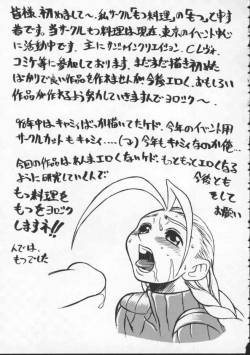 皆様、初めまして〜、私サークル「もつ料理」の「もつ」と申す
者です。当サークルもつ料理は現在、東京のイベント中心
に活動中です。主にサンシャインクリエイション、C.レヴォ、
コミケ等に参加しております。まだまだ描き初めた
ばかりで良い作品を作れませんが今後エロく、おもしろい
作品が作れるよう努力していきますんでヨロシク〜
96年中は、キャミィばっか描いてたケド、今年のイベント用
サークルカットもキャミィ…(つ)今年もキャミィなのか俺…
今回の作品はあんまエロくないケド、もっともっとエロくなる
ように研究していくんで
今後とも
もつ料理を
もつをヨロシク
しますネ!!
をして
お願い
んでは、
もつでした